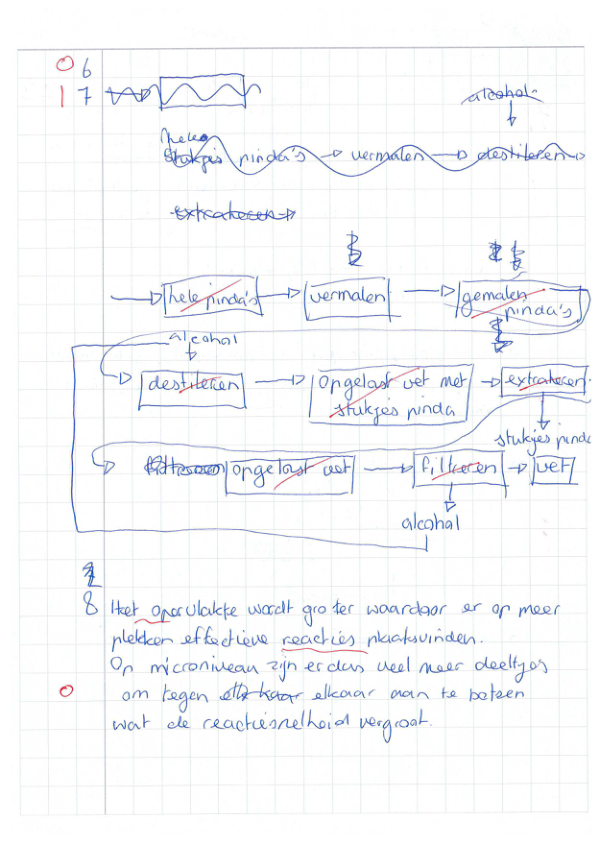 0 6
1 7
alcohol
hele
stukjes pinda's → vermalen → destileren →
extraheren →
→ hele pinda's → vermalen → gemalen
pinda's
alcohol
→ destileren → opgelost vet met → extraheren
stukjes pinda
stukjes pinda
→ opgelost vet → filtreren → vet
alcohol
8 Het opervlakte wordt groter waardoor er op meer
plekken effectieve reacties plaatsvinden.
Op microniveau zijn er dus veel meer deeltjes
0 om tegen elkaar aan te botsen
wat de reactiesnelheid vergroot.